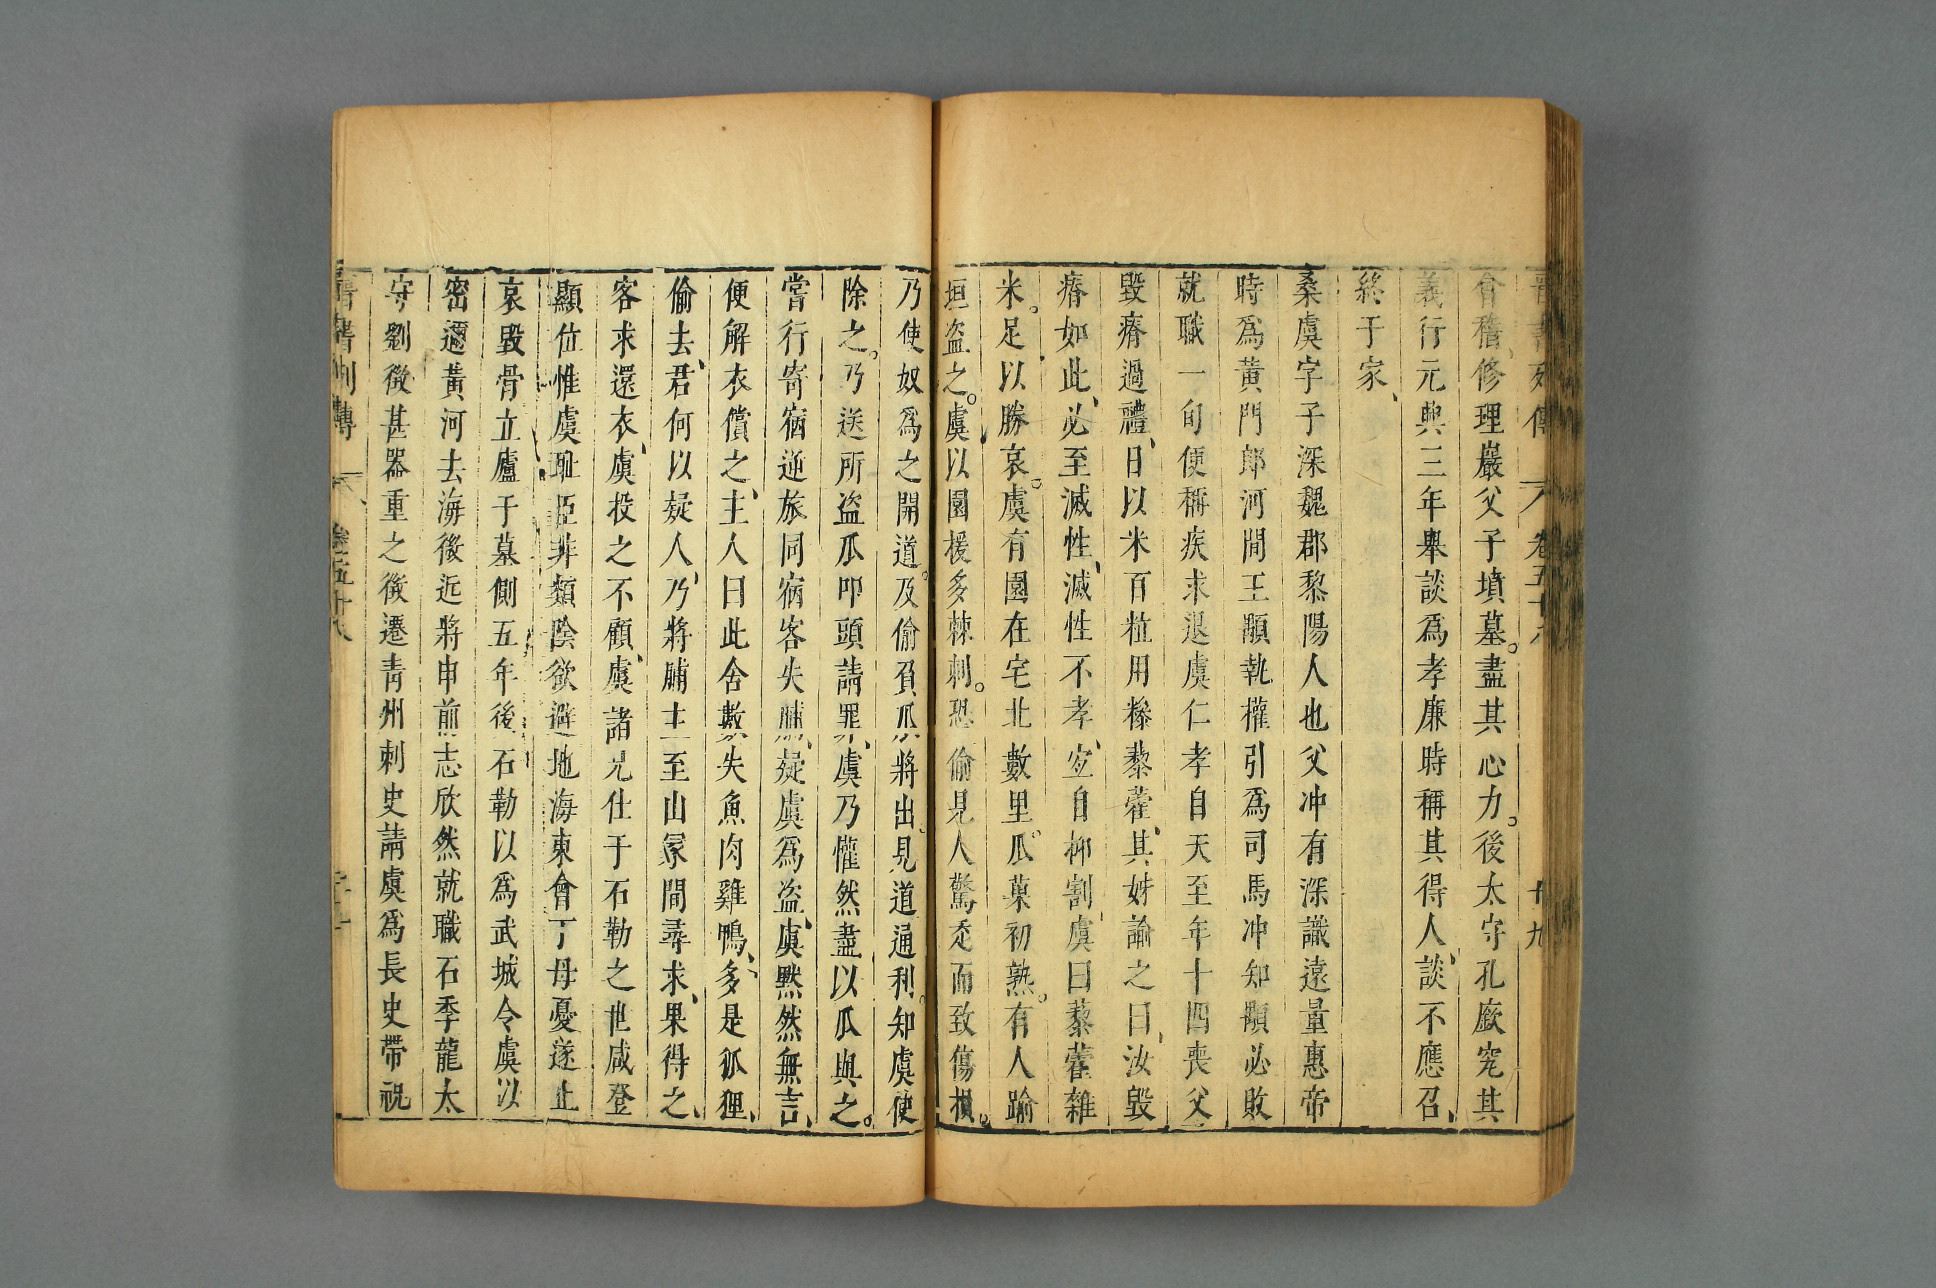 晉書列傳 卷五十八 十九
會稽修理巖父子墳墓盡其心力後太守孔廞究其
義行元興三年舉談爲孝廉時稱其得人談不應召
終于家
桑虞字子深魏郡黎陽人也父冲有深識遠量惠帝
時爲黃門郎河間王顒執權引爲司馬冲知顒必敗
就職一旬便稱疾求退虞仁孝自天至年十四喪父
毀瘠過禮日以米百粒用糝藜藿其姊諭之曰汝毀
瘠如此必至滅性滅性不孝宜自抑割虞曰藜藿雜
米足以勝哀虞有園在宅北數里瓜菓初熟有人踰
垣盗之虞以園援多棘刺恐偷見人驚走而致傷損
乃使奴爲之開道及偷負瓜將出見道通利知虞使
除之乃送所盗瓜叩頭請罪虞乃懽然盡以瓜與之
嘗行寄宿逆旅同宿客失脯疑虞爲盗虞黙然無言
便解衣償之主人曰此舍數失魚肉雞鴨多是狐狸
偷去君何以疑人乃將脯主至山冢間尋求果得之
客求還衣虞投之不顧虞諸兄仕于石勒之世咸登
顯位惟虞耻臣非類陰欲避地海東會丁母憂遂止
哀毀骨立廬于墓側五年後石勒以爲武城令虞以
密邇黃河去海後近將申前志欣然就職石季龍太
守劉徵甚器重之徵遷青州刺史請虞爲長史帶祝
晉書列傳 卷五十八